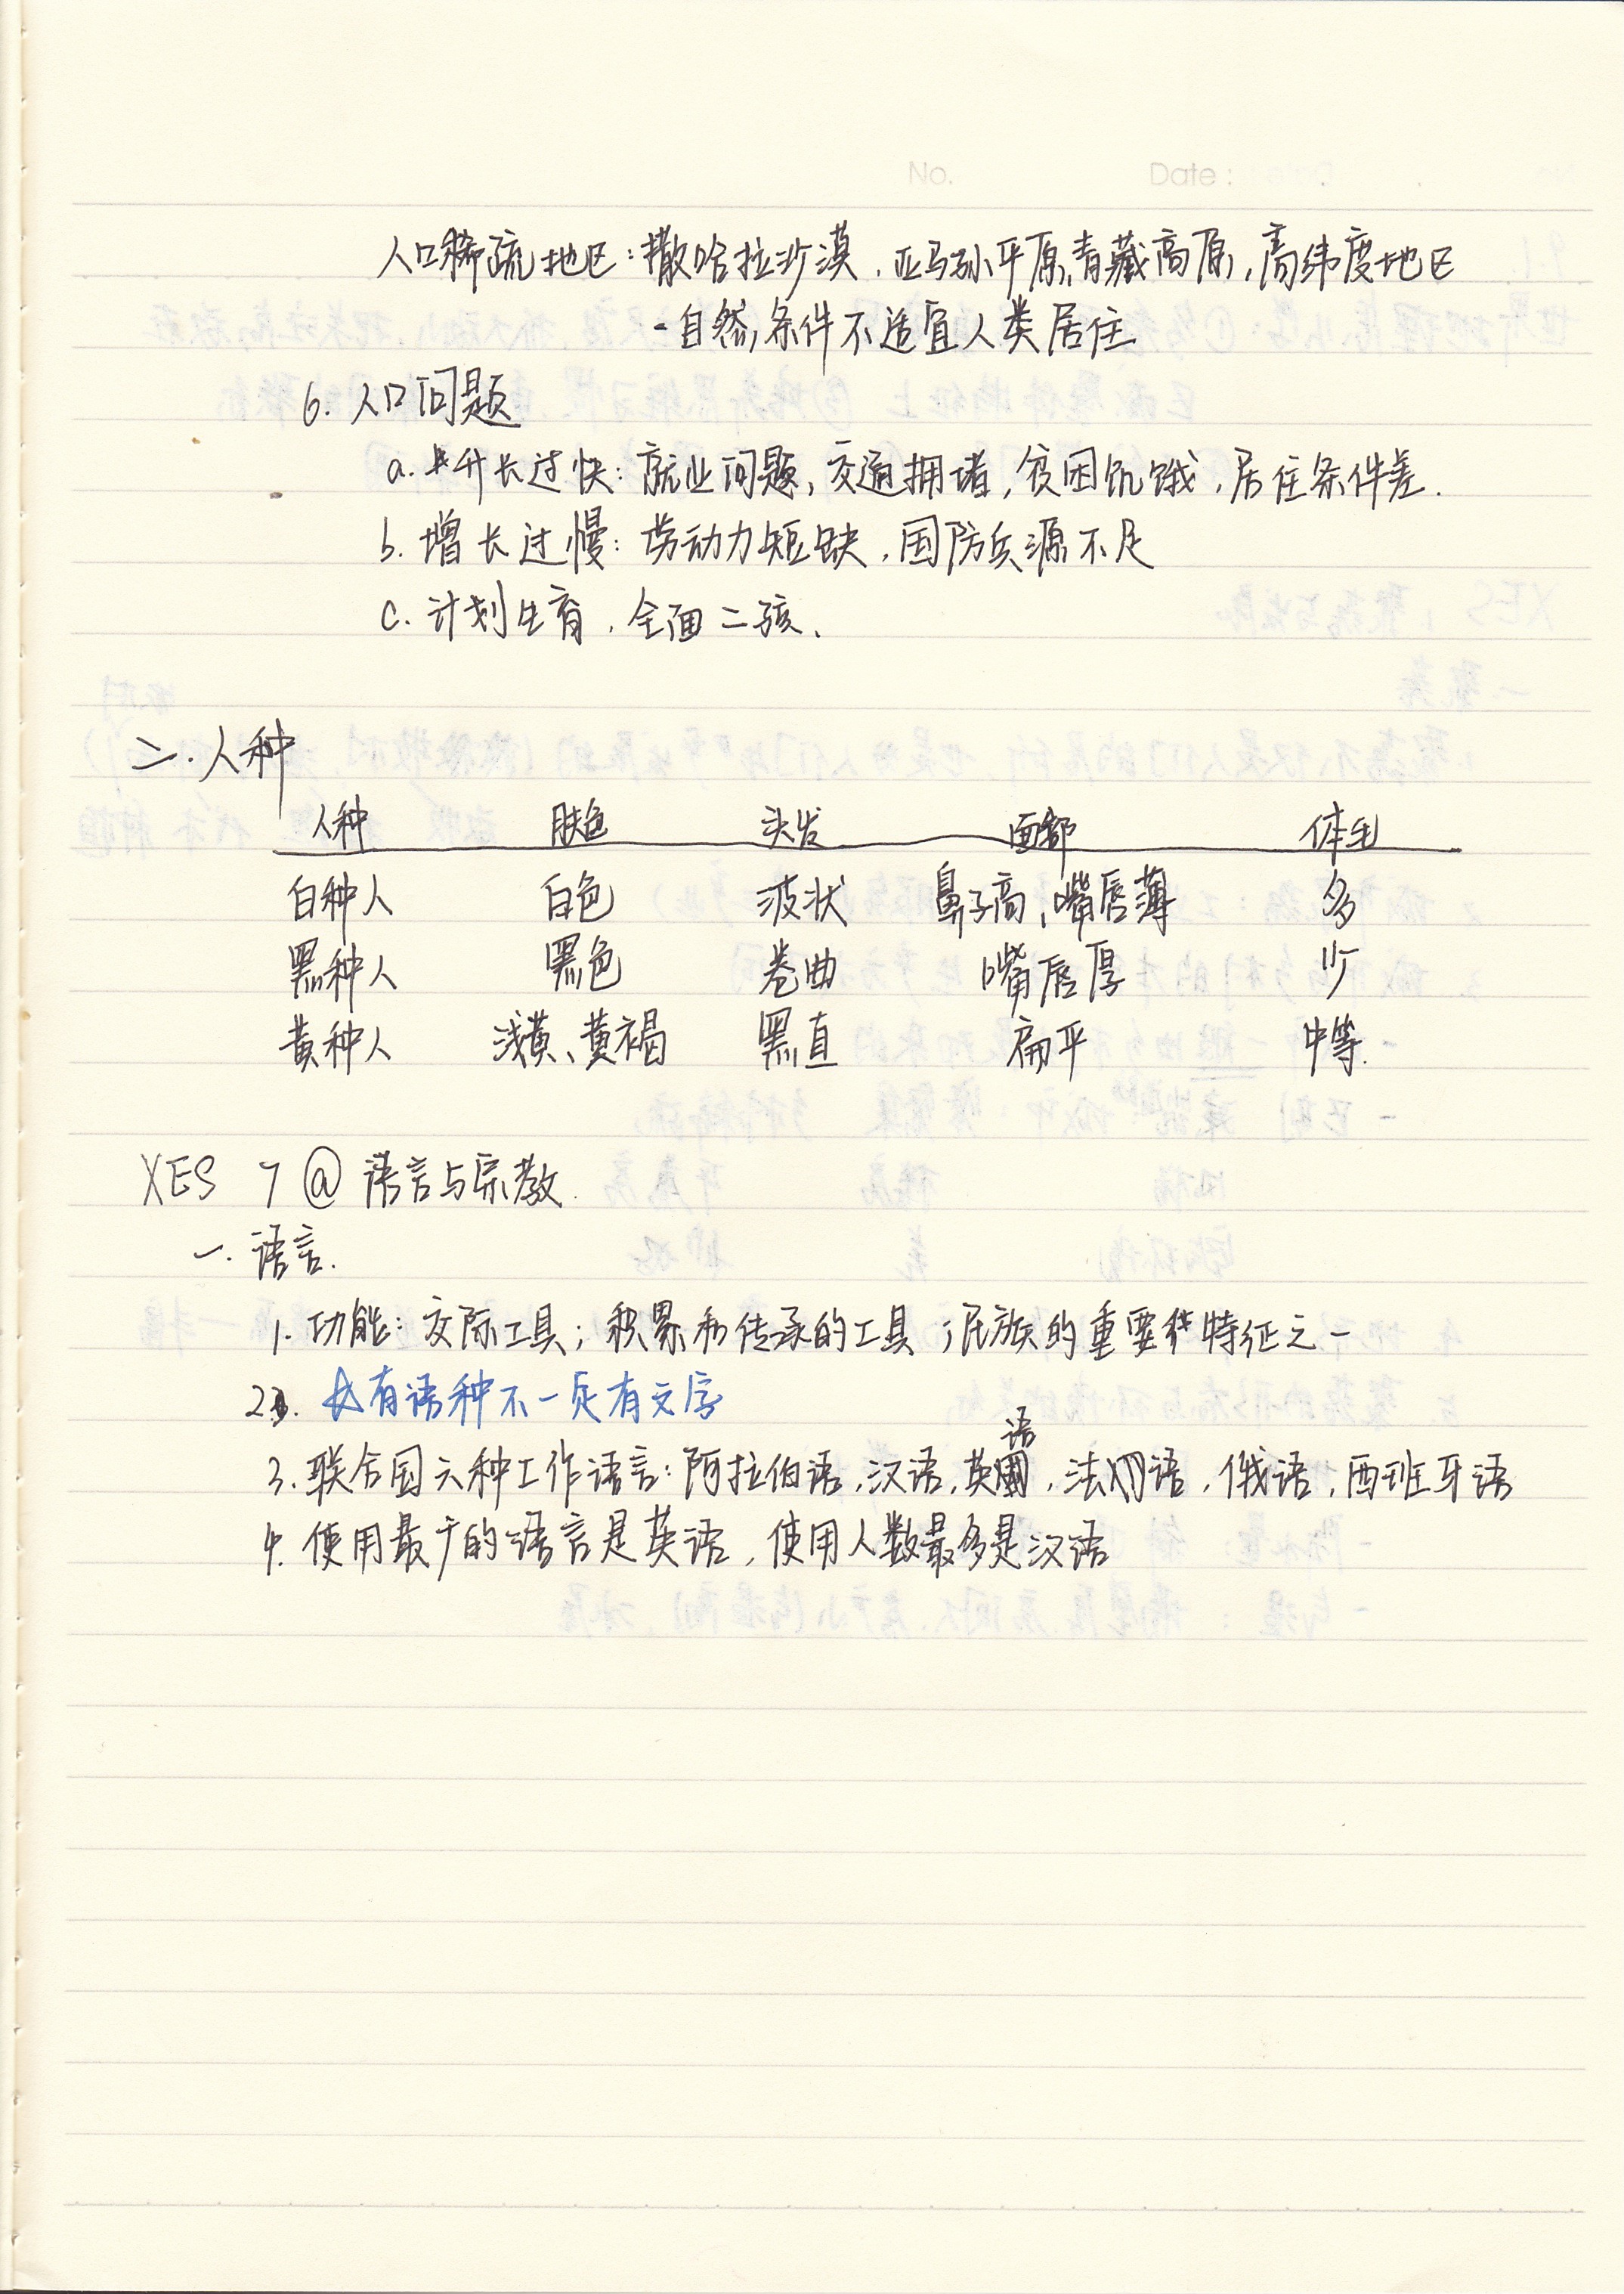 No. Date:
人口稀疏地区：撒哈拉沙漠，亚马孙平原，青藏高原，高纬度地区
- 自然条件不适宜人类居住
6. 人口问题
a. 升长过快：就业问题，交通拥堵，贫困饥饿，居住条件差.
b. 增长过慢：劳动力短缺，国防兵源不足
c. 计划生育，全面二孩.
二. 人种
人种 肤色 头发 面部 体毛
白种人 白色 波状 鼻子高、嘴唇薄 多
黑种人 黑色 卷曲 嘴唇厚 少
黄种人 浅黄、黄褐 黑直 扁平 中等.
XES 7@ 语言与宗教.
一. 语言.
1. 功能：交际工具；积累和传承的工具；民族的重要特征之一
2. ☆有语种不一定有文字
3. 联合国六种工作语言：阿拉伯语，汉语，英语，法语，俄语，西班牙语
4. 使用最广的语言是英语，使用人数最多是汉语